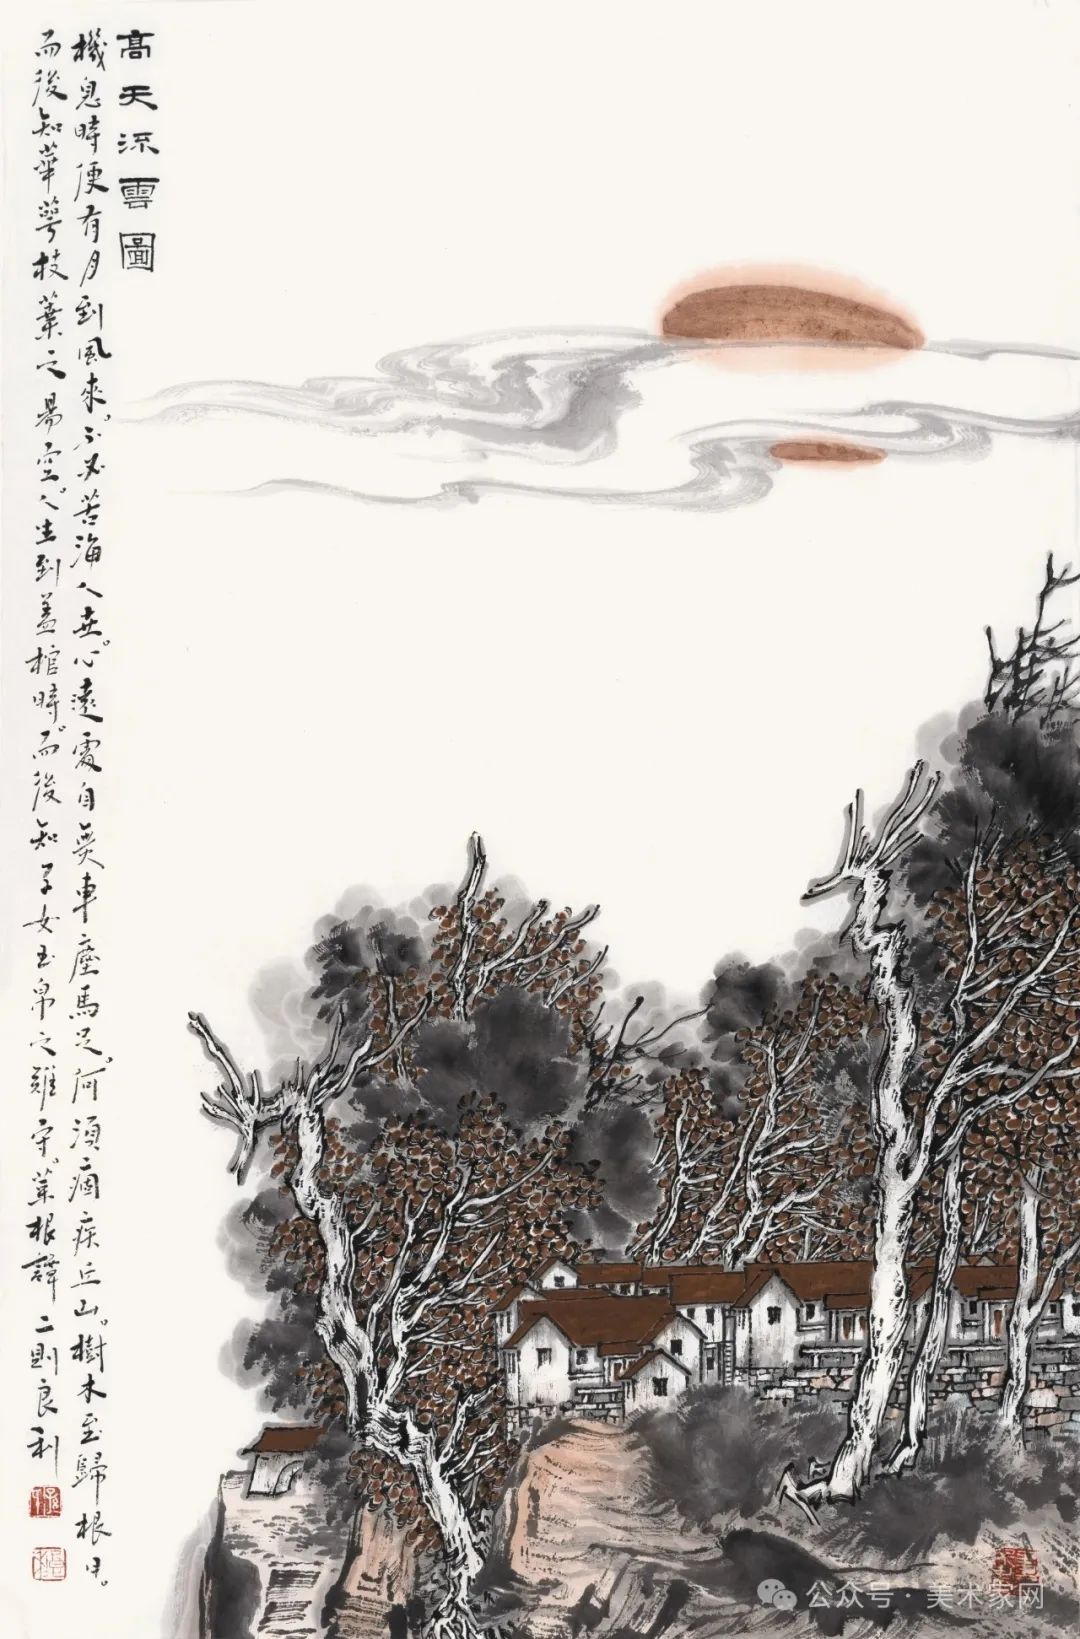 高天流雲圖
機息時便有月到風來。不必苦海人世。心遠處自無車塵馬足。何須痼疾丘山。樹木至歸根日。
而後知華萼枝葉之易空。人生到蓋棺時。而後知子女玉帛之難守。菜根譚二則良利
公众号·美术家网